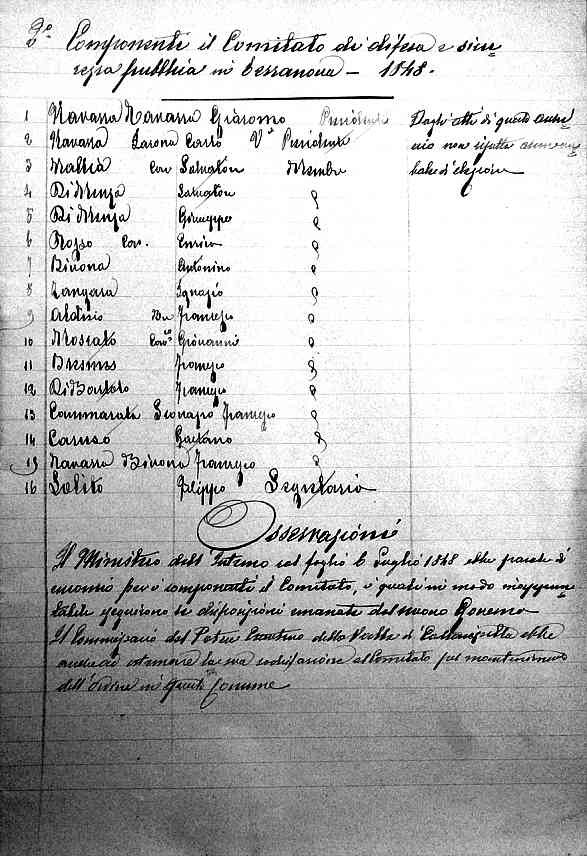 2º Componenti il Comitato di difesa e sicu
rezza pubblica in Terranova – 1848.
1 Navarra Navarra Giacomo Presidente Dagli atti di questo
2 Navarra Carlo Vº Presidente non risulta
3 Mallia Cav Salvatore Membro
4 Di Menza Salvatore
5 Di Menza Giuseppe
6 Rosso Cav. Enrico
7 Bivona Antonino
8 Zangara Ignazio
9 Aldisio Francesco
10 Moscato Giovanni
11 Bresmes Francesco
12 Di Bartolo Francesco
13 Cammarata Scorzapo Francesco
14 Caruso Gaetano
15 Navarra Bivona Francesco
16 Solito Filippo Segretario
Osservazioni
Il Ministro dell'Interno col foglio 6 Luglio 1848 ebbe parole d'
encomio per i componenti il Comitato, i quali in modo inappun
tabile eseguirono le disposizioni emanate dal nuovo Governo
Il Commissario del Potere Esecutivo della Valle di Caltanissetta ebbe
anche ad esternare la sua sodisfazione al Comitato pel mantenimento
dell'ordine in questo Comune